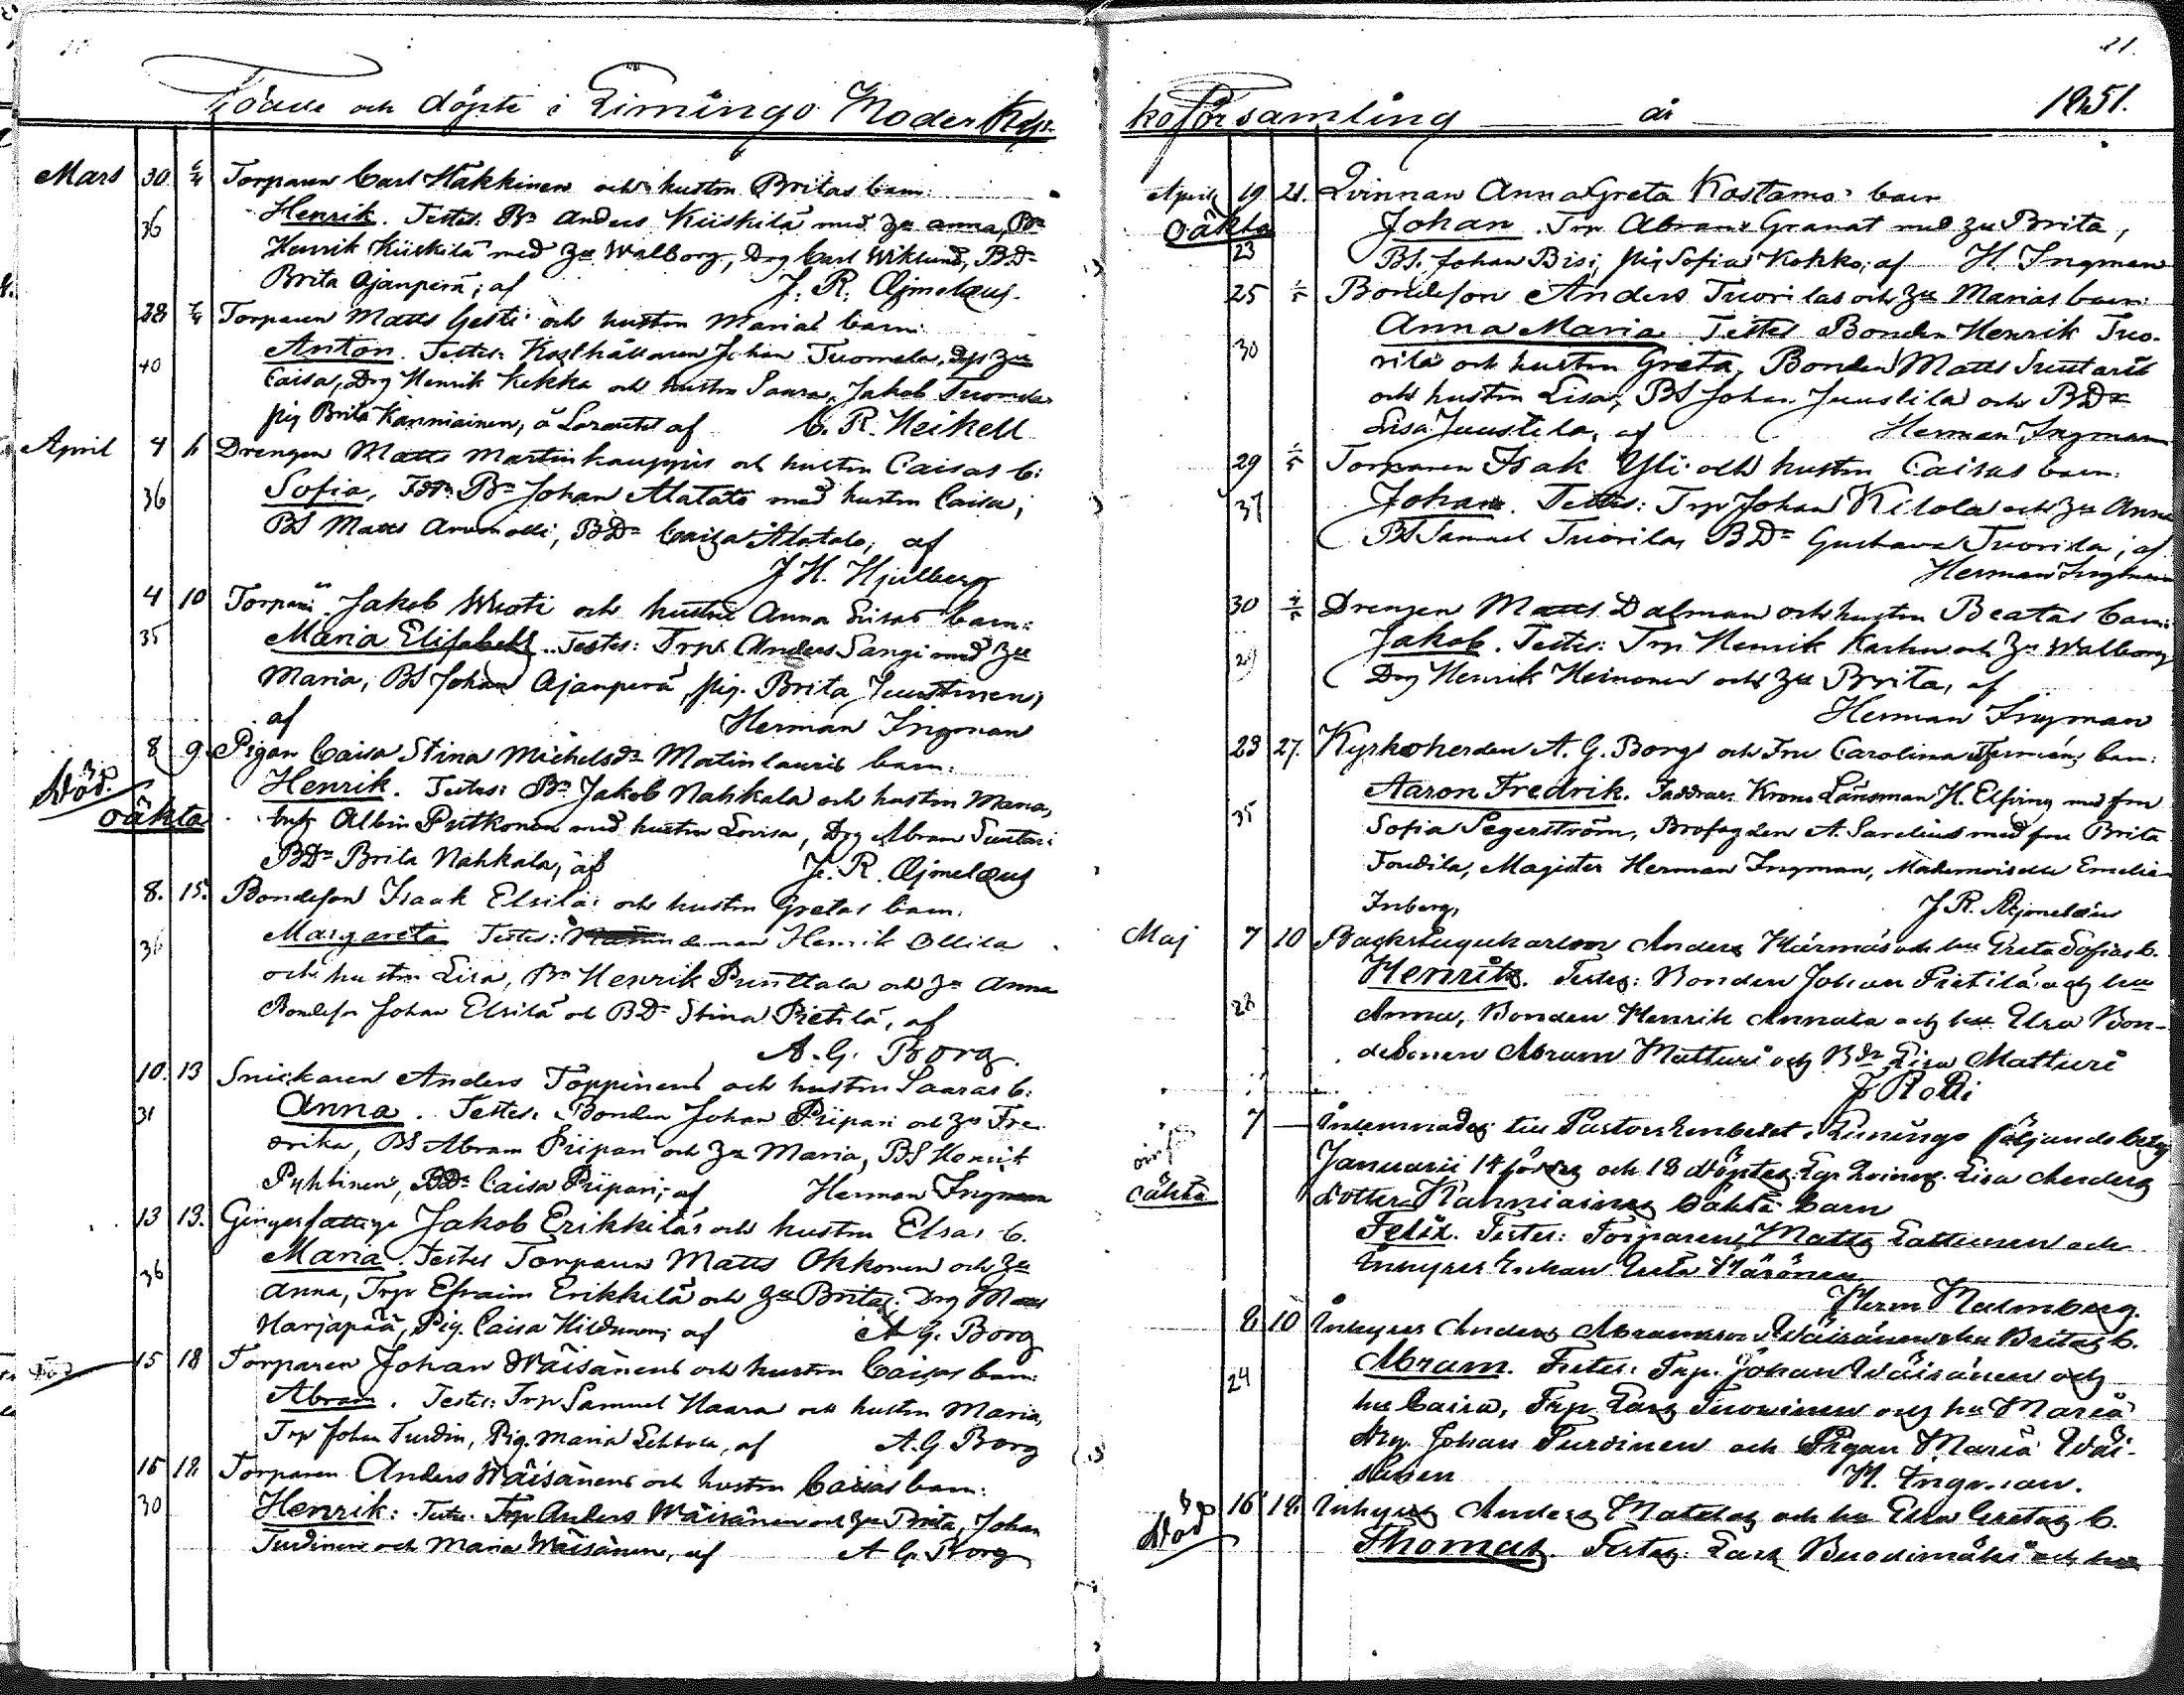 Födde och döpte i Limingo Moder Kyr-
Mars 30 6/4 Torparen Carl Häkkinen och hustru Britas barn:
36 Henrik. Testes: Bn Anders Kiiskilä med Hu Anna, Bn
Henrik Kiiskilä med Hu Walborg, Drg Carl Wiklund, BDr
Brita Ajanperä; af J. R. Ajmelæus.
28 Torparen Matts Gesti och hustru Marias barn:
40 Anton. Testes: Johan Tuomela, Hu
Caisa, Drg Henrik Kekka och hustru Saara, Jakob Tuomela
pig Brita Kanniainen, af C. R. Heikell
April 4 6 Drengen Matts Martinkauppis och hustru Caisas b:
36 Sofia, Fdr Bn Johan Alatalo med hustru Caisa;
BS Matts BDr Caisa Alatalo; af
J H. Hjulberg
4 10 Torpar. Jakob och hustru Anna Lisas barn:
35 Maria Elisabeth. Testes: Trp. Anders Sangi med Hu
Maria, BS Johan Ajanperä, pig. Brita Juustinen;
af Herman Ingman
8 9. Pigan Caisa Stina Michelsdr Matinlauris barn:
Död. 30 Henrik. Testes: Bn Jakob Nahkala och hustru Maria,
oäkta Albin Pitkonen med hustru Lovisa, Drg Abram Suutari
BDr Brita Nahkala; af J. R. Ajmelæus
8. 15. Bondeson Isaak Elsilä och hustru Gretas barn.
36 Margareta Testes: Henrik Ollila
och hustru Lisa, Bn Henrik Punttala och Hu Anna
Bondeson Johan Elsilä och BDr Stina Pietilä, af
A. G. Borg.
10. 13 Snickaren Anders Toppinens och hustru Saaras b:
31 Anna. Testes: Bonden Johan Piipari och Hu Fre-
drika, BS Abram Piipari och Hu Maria, BS Henrik
Pyhtinen, BDr Caisa Piipari; af Herman Ingman
13 13. Jakob Erikkiläs och hustru Elsas b.
36 Maria. Testes Torparen Matts Okkonen och Hu
Anna, Trp Efraim Erikkilä och Hu Brita; Drg Matts
Marjapää, Pig. Caisa Hildunen; af A G. Borg
Död 15 18 Torparen Johan Wäisänens och hustru Caisas barn:
Abram. Testes: Trp Samuel Haara och hustru Maria,
Trp Johan Turdin, Pig. Maria Lehtola, af A. G Borg
15 18 Torparen Anders Wäisänens och hustru Caisas barn:
30 Henrik: Testes: Trp Anders Wäisänen och Hu Brita, Johan
Turdinen och Maria Wäisänen, af A G. Borg
21.
koförsamling år 1851.
April 19 21. Qvinnan Anna Greta Kastama's barn
oäkta Johan. Trp Abram Granat med Hu Brita,
23 BS. Johan Bisi, pig Sofia Kokko; af H. Ingman
25 Bondeson Anders Tuorilas och Hu Marias barn:
Anna Maria. Testes Bonden Henrik Tuo-
30 rila och hustru Greta, Bonden Matts Suutari
och hustru Lisa, BS Johan Juustila och BDr
Lisa Juustila, af Herman Ingman
29 Torparen Isak Yli och hustru Caisas barn:
37 Johan. Testes: Trp Johan Kilola och Hu Anna
BS Samuel Tuorila, BDr Gustava Tuorila; af
Herman Ingman
30 Drengen Matts Dalman och hustru Beatas barn:
29 Jakob. Testes: Trp Henrik Karhu och Hu Walborg
Drg Henrik Heinonen och Hu Brita, af
Herman Ingman
23 27. Kyrkoherden A. G. Borgs och Fru Carolina barn:
35 Aaron Fredrik. Faddrar: Krono Länsman H. Elfving med fru
Sofia Segerström, Brofogden A. Sarelius med fru Brita
Toudila, Magister Herman Ingman, Mademoiselle Emelie
Inberg, J R. Ajmelæus
Maj 7 10 Anders Härmäs och hu Greta Sofias b.
Henrik. Testes: Bonden Johan Pietilä och hu
28 Anna, Bonden Henrik Annala och hu Elsa Bon-
desonen Abram Matturi och BDr Lisa Matturi
J Rolli
7 — till Pastorsembetet i Limingo följande betyg
Januarii 14 födes och 18 döptes Lisa Anders
oäkta dotter Kanniainens oäkta barn
Felix. Testes: Torparen Matts och
Greta Härönen
Herm Malmberg.
8 10 Inhyses Anders Abramsson Wäisänens hu Britas b.
24 Abram. Testes: Trp. Johan Wäisänen och
hu Caisa, Trp Lars Tuovinen och hu Maria
Drg. Johan Turdinen och Pigan Maria Wäi-
sänen H. Ingman.
Död 16 18. Inhyses Anders Matelas och hu Elsa Gretas b.
Thomas. Testes: Lars och hu